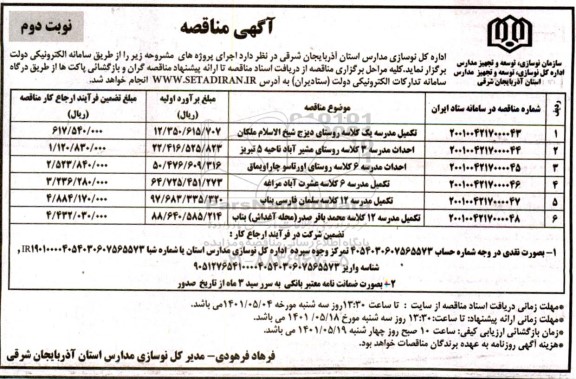 آگهی مناقصه
نوبت دوم
سازمان نوسازی، توسعه و تجهیز مدارس
اداره کل نوسازی، توسعه و تجهیز مدارس
استان آذربایجان شرقی
اداره کل نوسازی مدارس استان آذربایجان شرقی در نظر دارد اجرای پروژه های مشروحه زیر را از طریق سامانه الکترونیکی دولت
برگزار نماید.کلیه مراحل برگزاری مناقصه از دریافت اسناد مناقصه تا ارائه پیشنهاد مناقصه گران و بازگشائی پاکت ها از طریق درگاه
سامانه تدارکات الکترونیکی دولت (ستادیران) به آدرس WWW.SETADIRAN.IR انجام خواهد شد.
ردیف شماره مناقصه در سامانه ستاد ایران موضوع مناقصه مبلغ برآورد اولیه (ریال) مبلغ تضمین فرآیند ارجاع کار مناقصه (ریال)
۱ ۲۰۰۱۰۰۴۲۱۷۰۰۰۰۴۳ تکمیل مدرسه یک کلاسه روستای دیزج شیخ الاسلام ملکان ۱۲/۳۵۰/۶۱۵/۷۰۷ ۶۱۷/۵۴۰/۰۰۰
۲ ۲۰۰۱۰۰۴۲۱۷۰۰۰۰۴۴ احداث مدرسه ۳ کلاسه روستای مشیر آباد ناحیه ۵ تبریز ۲۲/۴۱۶/۵۲۵/۸۲۳ ۱/۱۲۰/۸۳۰/۰۰۰
۳ ۲۰۰۱۰۰۴۲۱۷۰۰۰۰۴۵ احداث مدرسه ۶ کلاسه روستای اورتاسو چاراویماق ۵۰/۴۷۶/۶۰۹/۳۱۶ ۲/۵۲۳/۸۴۰/۰۰۰
۴ ۲۰۰۱۰۰۴۲۱۷۰۰۰۰۴۶ تکمیل مدرسه ۶ کلاسه عشرت آباد مراغه ۶۴/۷۲۵/۴۵۱/۲۷۳ ۳/۲۳۶/۲۸۰/۰۰۰
۵ ۲۰۰۱۰۰۴۲۱۷۰۰۰۰۴۷ تکمیل مدرسه ۱۲ کلاسه سلمان فارسی بناب ۹۷/۶۸۳/۳۳۵/۳۲۰ ۴/۸۸۴/۱۷۰/۰۰۰
۶ ۲۰۰۱۰۰۴۲۱۷۰۰۰۰۴۸ تکمیل مدرسه ۱۲ کلاسه محمد باقر صدر(محله آغداش) بناب ۸۸/۶۴۰/۵۸۵/۲۱۴ ۴/۴۳۲/۰۳۰/۰۰۰
تضمین شرکت در فرآیند ارجاع کار :
۱- بصورت نقدی در وجه شماره حساب ۴۰۵۴۰۳۰۶۰۷۵۶۵۵۷۳ تمرکز وجوه سپرده اداره کل نوسازی مدارس استان یا شماره شبا IR۱۹۰۱۰۰۰۰۴۰۵۴۰۳۰۶۰۷۵۶۵۵۷۳،
شناسه واریز ۹۰۵۱۲۷۶۵۴۱۰۰۰۰۴۰۵۴۰۳۰۶۰۷۵۶۵۵۷۳
۲- بصورت ضمانت نامه معتبر بانکی به سر رسید ۳ ماه از تاریخ صدور
*مهلت زمانی دریافت اسناد مناقصه از سایت : تا ساعت ۱۳:۳۰ روز سه شنبه مورخه ۱۴۰۱/۰۵/۰۴ می باشد.
*مهلت زمانی ارائه پیشنهاد: تا ساعت:۱۳:۳۰ روز سه شنبه مورخ ۱۴۰۱/۰۵/۱۸ می باشد.
*زمان بازگشائی ارزیابی کیفی: ساعت ۱۰ صبح روز چهار شنبه ۱۴۰۱/۰۵/۱۹ می باشد.
*هزینه آگهی روزنامه به عهده برندگان مناقصات خواهد بود.
فرهاد فرهودی- مدیر کل نوسازی مدارس استان آذربایجان شرقی